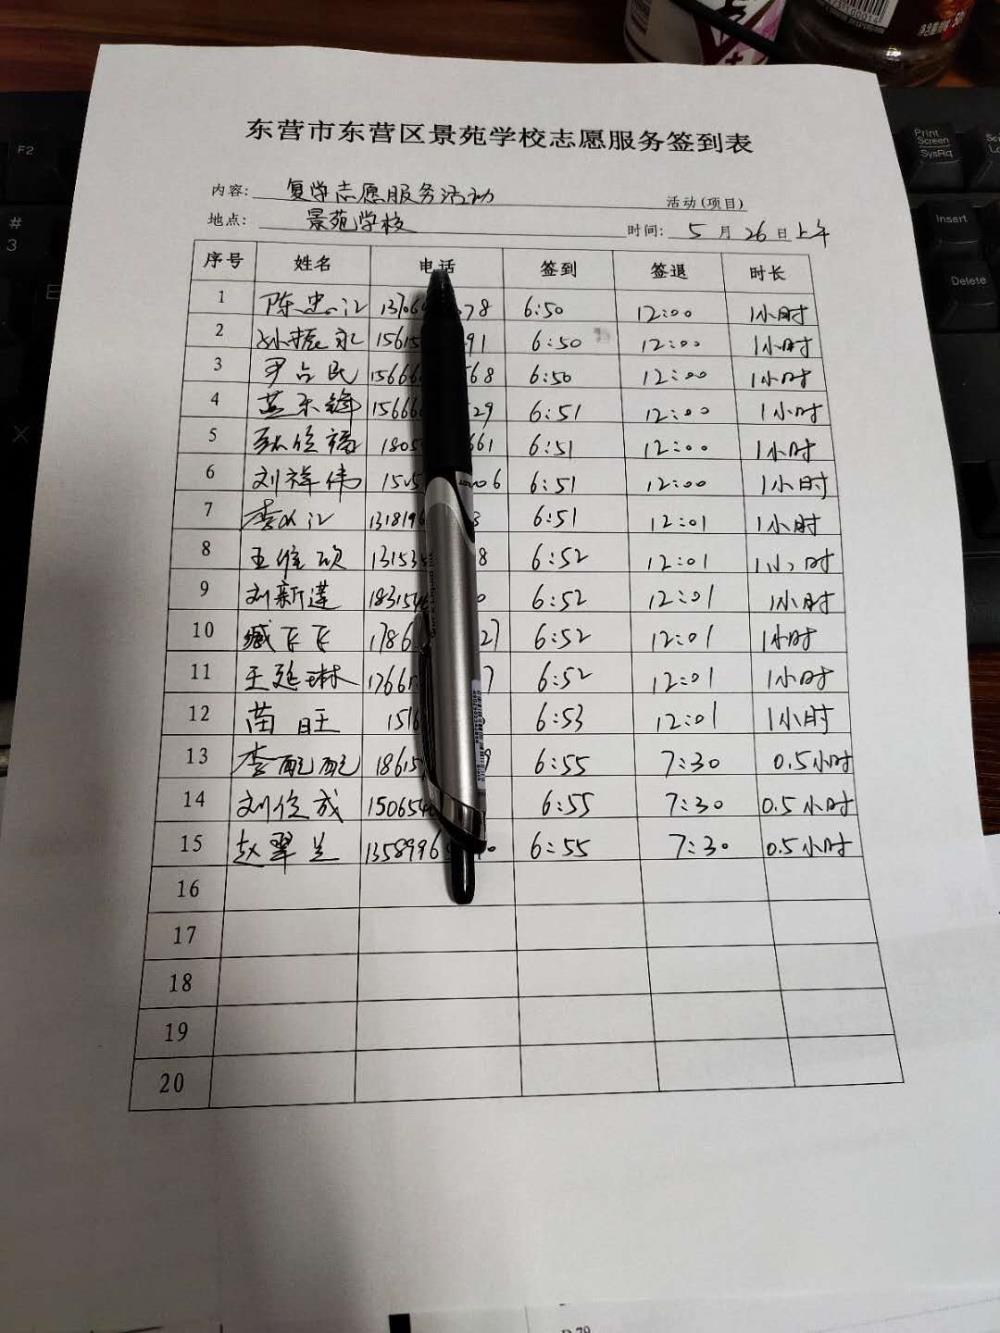 东营市东营区景苑学校志愿服务签到表
内容: 复学志愿服务活动 活动(项目)
地点: 景苑学校 时间: 5 月 26 日上午
序号 姓名 电话 签到 签退 时长
1 陈忠江 1370 78 6:50 12:00 1小时
2 孙振永 1561 91 6:50 12:00 1小时
3 尹占民 1566 68 6:50 12:00 1小时
4 1566 29 6:51 12:00 1小时
5 180 661 6:51 12:00 1小时
6 刘祥伟 06 6:51 12:00 1小时
7 131819 8 6:51 12:01 1小时
8 王维欣 13153 8 6:52 12:01 1小时
9 刘新莲 183154 0 6:52 12:01 1小时
10 臧飞飞 1786 27 6:52 12:01 1小时
11 王延琳 1266 7 6:52 12:01 1小时
12 苗旺 151 6:53 12:01 1小时
13 李配配 1861 9 6:55 7:30 0.5小时
14 刘俊成 150654 6:55 7:30 0.5小时
15 赵翠兰 1358996 0 6:55 7:30 0.5小时
16
17
18
19
20
F2
#
3
Print
Screen
SysRq
Insert
Delete